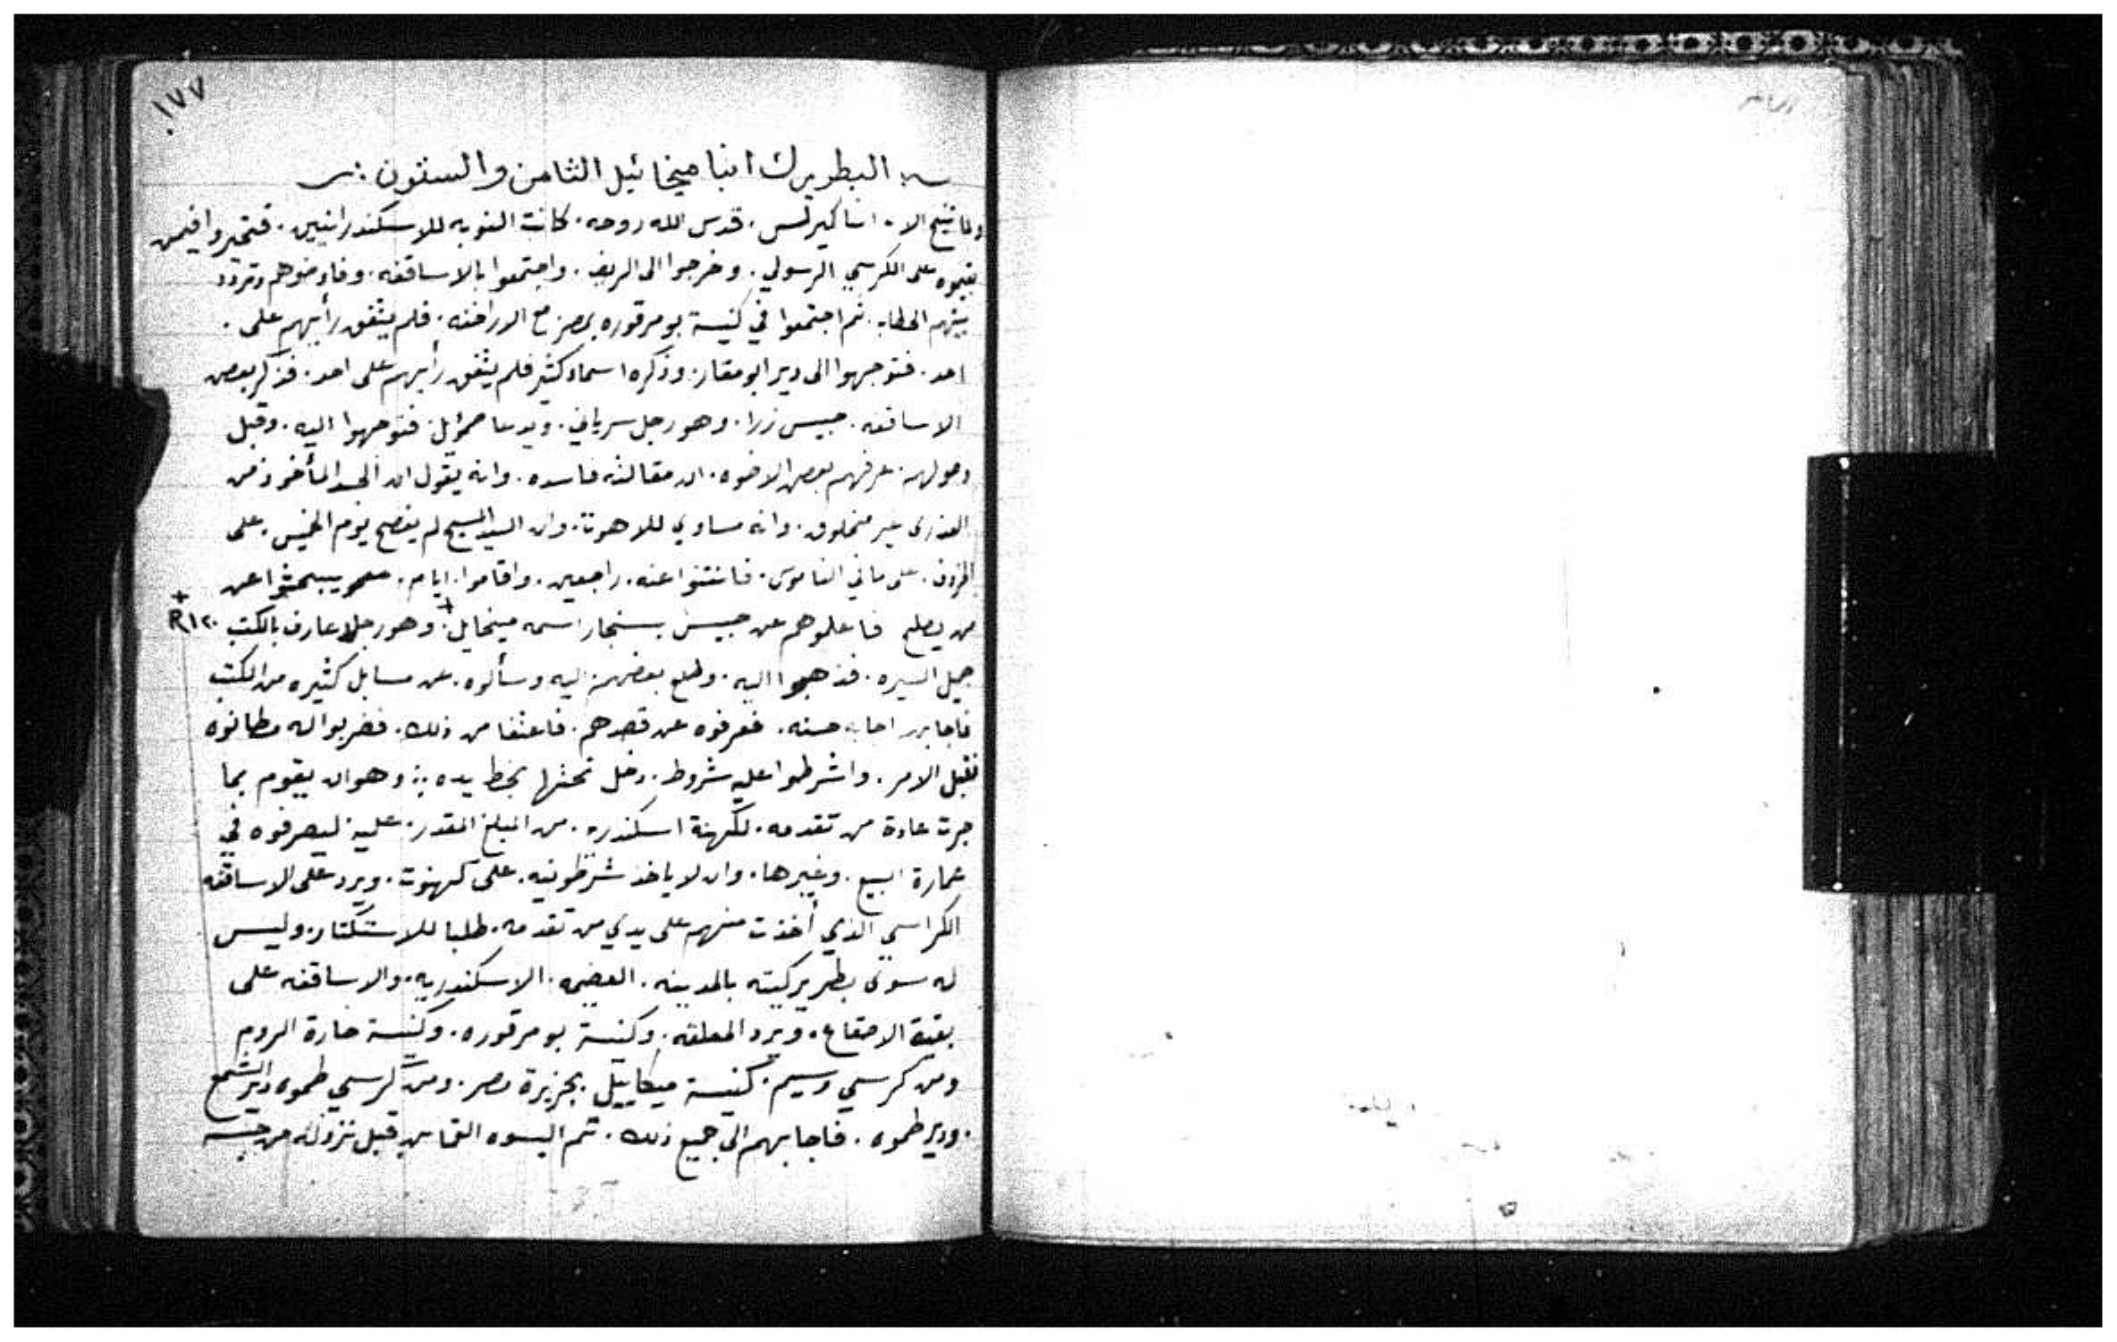 ١٧٧
البطريرك انبا ميخائيل الثامن والستون
ولما تنيح الاب انبا كيرلس . قدس الله روحه . كانت النوبه للاسكندرانيين . فتحيروا فيمن
يقيموه على الكرسي الرسولي . وخرجوا الى الريف . واجتمعوا بالاساقفه . وفاوضوهم وتردد
بينهم الخطاب . ثم اجتمعوا في كنيسة بومرقوره بمصر مع الاراخنه . فلم يتفق رأيهم على .
احد . فتوجهوا الى دير ابو مقار . وذكره اسماء كثير فلم يتفق رأيهم على احد . فذكر بعض
الاساقفه . حبيس زرا . وهو رجل سرياني . ويدعا صموئل . فتوجهوا اليه . وقبل
وصولهم . عرفهم بعض الاخوه . ان مقالته فاسده . وانه يقول ان الجسد المأخوذ من
العذرى غير مخلوق . وانه مساوي للاهوت . وان السيد المسيح لم يفصح يوم الخميس . على
الخروف . على ما في الناموس . فانثنوا عنه . راجعين . واقاموا . ايام . يبحثوا عن
من يصلح فاعلموهم عن حبيس بسنجار اسمه ميخايل + وهو رجلا عارف بالكتب
+ R١٢٠
جميل السيره . فذهبوا اليه . وطلع بعضهم . اليه وسألوه . عن مسايل كثيره من الكتب
فاجابهم اجابه حسنه . فعرفوه عن قصدهم . فاعتفا من ذلك . فضربوا له مطانوه
فقبل الامر . واشرطوا عليه شروط . دخل تحتها بخط يده : وهو ان يقوم بما
جرت عادة من تقدمه . لكهنة اسكندريه . من المبلغ المقدر . عليه ليصرفوه في
عمارة البيع . وغيرها . وان لا ياخذ شرطونيه . على كهنوت . ويرد على الاساقفه
الكراسي الذي أخذت منهم على يدي من تقدمه . طلبا للاستكتار . وليس
له سوى بطريركيته بالمدينه . العضيمه . الاسكندريه . والاساقفه على
بقية الاصقاع . ويرد المعلقه . وكنيسة بومرقوره . وكنيسة حارة الروم
ومن كرسي وسيم . كنيسة ميكاييل . بجزيرة مصر . ومن كرسي طموه دير الشمع
. ودير طموه . فاجابهم الى جميع ذلك . ثم البسوه القماس قبل نزوله من حبسه